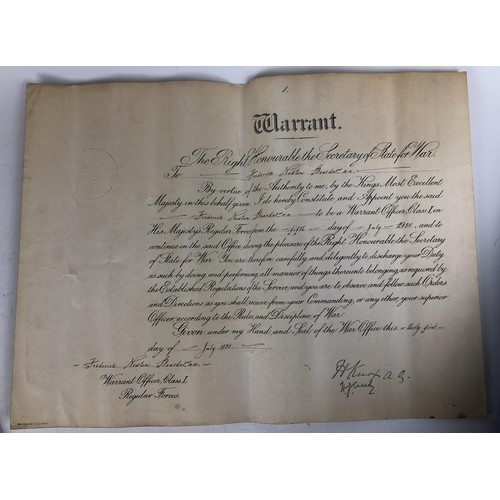 1.
Warrant.
The Right Honourable the Secretary of State for War.
To Frederick
By virtue of the Authority to me, by the Kings Most Excellent
Majesty in this behalf given I do hereby Constitute and Appoint you the said
Frederick to be a Warrant Officer, Class I, in
His Majesty's Regular Forces from the fifth day of July 1935, and to
continue in the said Office during the pleasure of the Right Honourable the Secretary
of State for War. You are therefore carefully and diligently to discharge your Duty
as such by doing and performing all manner of things thereunto belonging, as required by
the Established Regulations of the Service, and you are to observe and follow such Orders
and Directions as you shall receive from your Commanding, or any other, your superior
Officer, according to the Rules and Discipline of War.
Given under my Hand and Seal of the War Office this thirty first
day of July
Frederick
Warrant Officer, Class I,
Regular Forces.